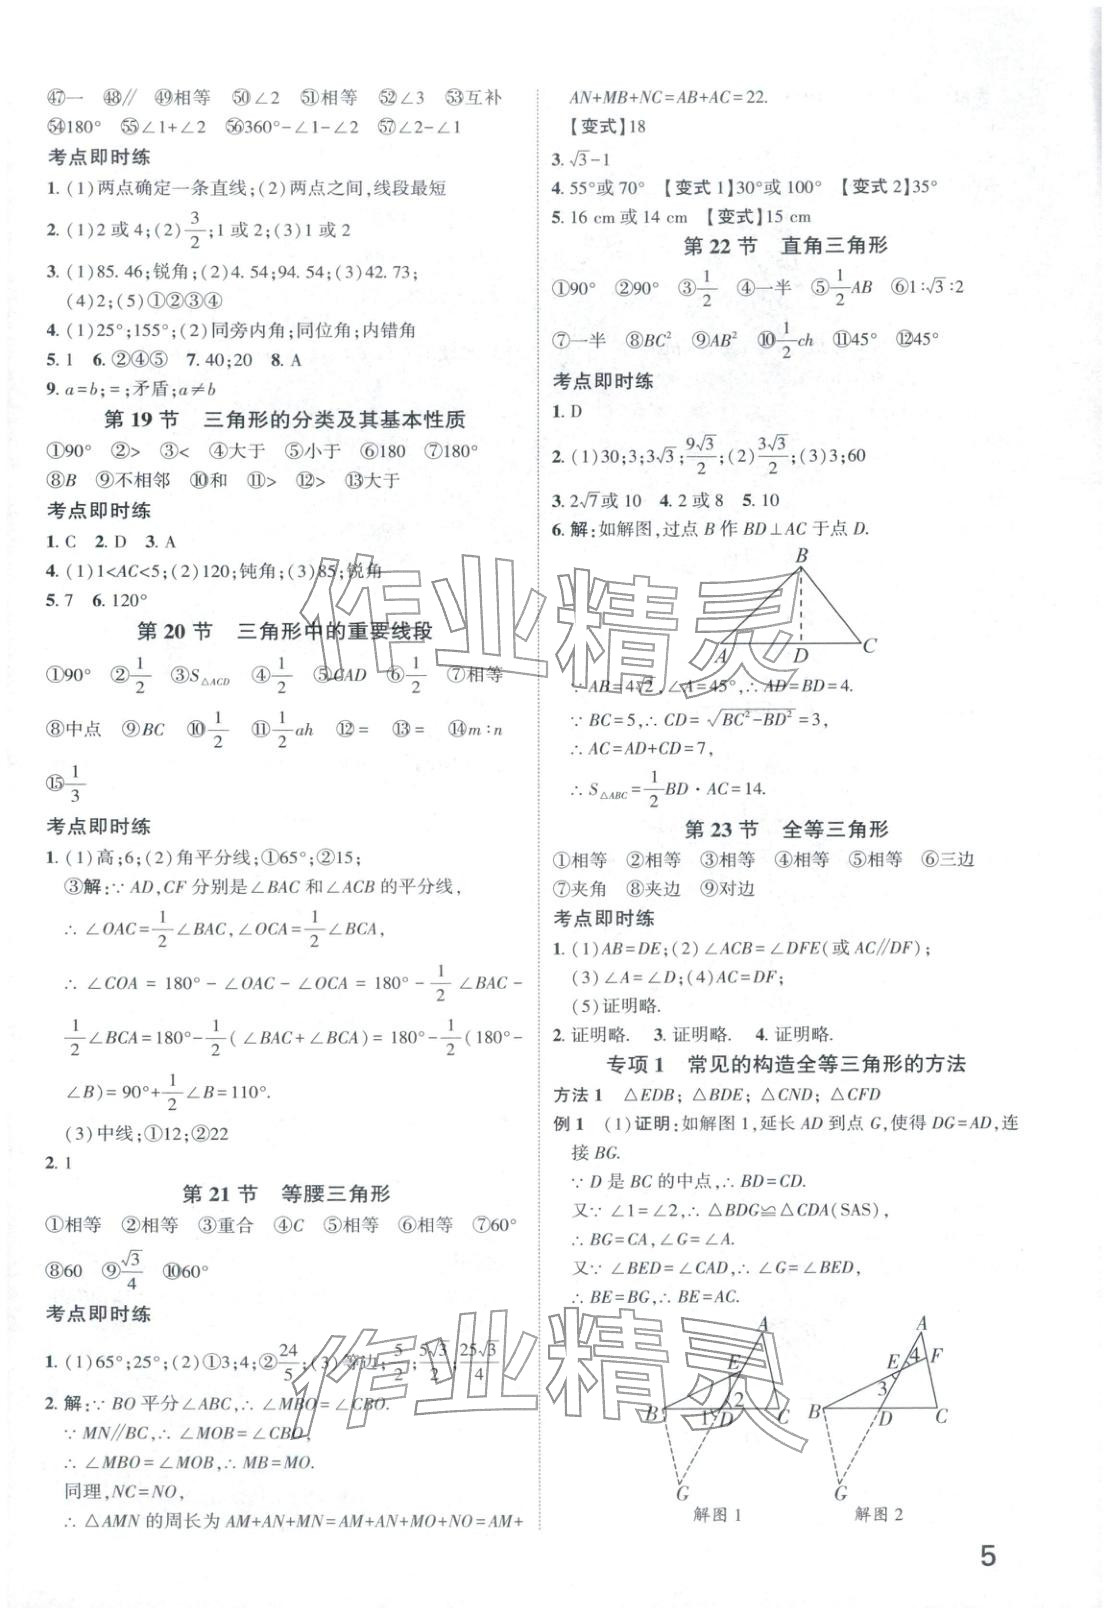 ㊼一 ㊽∥ ㊾相等 ㊿∠2 51相等 52∠3 53互补
54180° 55∠1+∠2 56360°-∠1-∠2 57∠2-∠1
考点即时练
1. (1)两点确定一条直线;(2)两点之间,线段最短
2. (1)2或4;(2)3/2;1或2;(3)1或2
3. (1)85.46;锐角;(2)4.54;94.54;(3)42.73;
(4)2;(5)①②③④
4. (1)25°;155°;(2)同旁内角;同位角;内错角
5. 1 6. ②④⑤ 7. 40;20 8. A
9. a=b;=;矛盾;a≠b
第19节 三角形的分类及其基本性质
①90° ②> ③< ④大于 ⑤小于 ⑥180 ⑦180°
⑧B ⑨不相邻 ⑩和 ⑪> ⑫> ⑬大于
考点即时练
1. C 2. D 3. A
4. (1)1<AC<5;(2)120;钝角;(3)85;锐角
5. 7 6. 120°
第20节 三角形中的重要线段
①90° ②1/2 ③S△ACD ④1/2 ⑤CAD ⑥1/2 ⑦相等
⑧中点 ⑨BC ⑩1/2 ⑪1/2ah ⑫= ⑬= ⑭m∶n
⑮1/3
考点即时练
1. (1)高;6;(2)角平分线;①65°;②15;
③解:∵AD,CF分别是∠BAC和∠ACB的平分线,
∴∠OAC=1/2∠BAC,∠OCA=1/2∠BCA,
∴∠COA=180°-∠OAC-∠OCA=180°-1/2∠BAC-
1/2∠BCA=180°-1/2(∠BAC+∠BCA)=180°-1/2(180°-
∠B)=90°+1/2∠B=110°.
(3)中线;①12;②22
2. 1
第21节 等腰三角形
①相等 ②相等 ③重合 ④C ⑤相等 ⑥相等 ⑦60°
⑧60 ⑨√3/4 ⑩60°
考点即时练
1. (1)65°;25°;(2)①3;4;②24/5;(3)等边;5/2;5√3/2;25√3/4
2. 解:∵BO平分∠ABC,∴∠MBO=∠CBO.
∵MN∥BC,∴∠MOB=∠CBO,
∴∠MBO=∠MOB,∴MB=MO.
同理,NC=NO,
∴△AMN的周长为AM+AN+MN=AM+AN+MO+NO=AM+
AN+MB+NC=AB+AC=22.
【变式】18
3. √3-1
4. 55°或70° 【变式1】30°或100° 【变式2】35°
5. 16 cm或14 cm 【变式】15 cm
第22节 直角三角形
①90° ②90° ③1/2 ④一半 ⑤1/2AB ⑥1∶√3∶2
⑦一半 ⑧BC² ⑨AB² ⑩1/2ch ⑪45° ⑫45°
考点即时练
1. D
2. (1)30;3;3√3;9√3/2;(2)3√3/2;(3)3;60
3. 2√7或10 4. 2或8 5. 10
6. 解:如解图,过点B作BD⊥AC于点D.
B
A D C
∵AB=4√2,∠A=45°,∴AD=BD=4.
∵BC=5,∴CD=√(BC²-BD²)=3,
∴AC=AD+CD=7,
∴S△ABC=1/2BD·AC=14.
第23节 全等三角形
①相等 ②相等 ③相等 ④相等 ⑤相等 ⑥三边
⑦夹角 ⑧夹边 ⑨对边
考点即时练
1. (1)AB=DE;(2)∠ACB=∠DFE(或AC∥DF);
(3)∠A=∠D;(4)AC=DF;
(5)证明略.
2. 证明略. 3. 证明略. 4. 证明略.
专项1 常见的构造全等三角形的方法
方法1 △EDB;△BDE;△CND;△CFD
例1 (1)证明:如解图1,延长AD到点G,使得DG=AD,连
接BG.
∵D是BC的中点,∴BD=CD.
又∵∠1=∠2,∴△BDG≌△CDA(SAS),
∴BG=CA,∠G=∠A.
又∵∠BED=∠CAD,∴∠G=∠BED,
∴BE=BG,∴BE=AC.
A
E
B 1 D 2 C
G
解图1
A
E 4 F
3
B D C
G
解图2
5
作业精灵
作业精灵